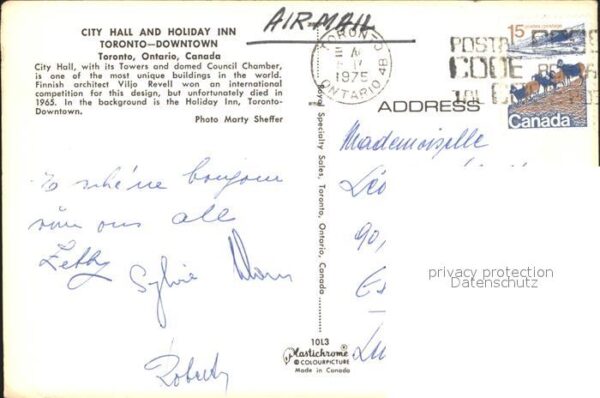 CITY HALL AND HOLIDAY INN
TORONTO—DOWNTOWN
Toronto, Ontario, Canada
City Hall, with its Towers and domed Council Chamber,
is one of the most unique buildings in the world.
Finnish architect Viljo Revell won an international
competition for this design, but unfortunately died in
1965. In the background is the Holiday Inn, Toronto-
Downtown.
Photo Marty Sheffer
AIR MAIL
TORONTO
1975
ONTARIO
15
POSTA
CODE
Canada
ADDRESS
Mademoiselle
Léo
90,
schéne bonjour
all
Sylvie
Royal Specialty Sales, Toronto, Ontario, Canada
privacy protection
Datenschutz
10L3
Plastichrome
COLOURPICTURE
Made in Canada